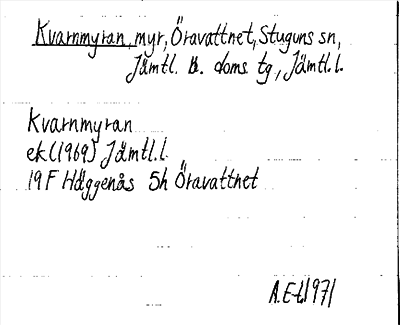 Kvarnmyran, myr, Öravattnet, Stuguns sn,
Jämtl. B. doms tg, Jämtl.l.
Kvarnmyran
ek (1969) Jämtl.l.
19 F Häggenås 5h Öravattnet
A.E-t 1971